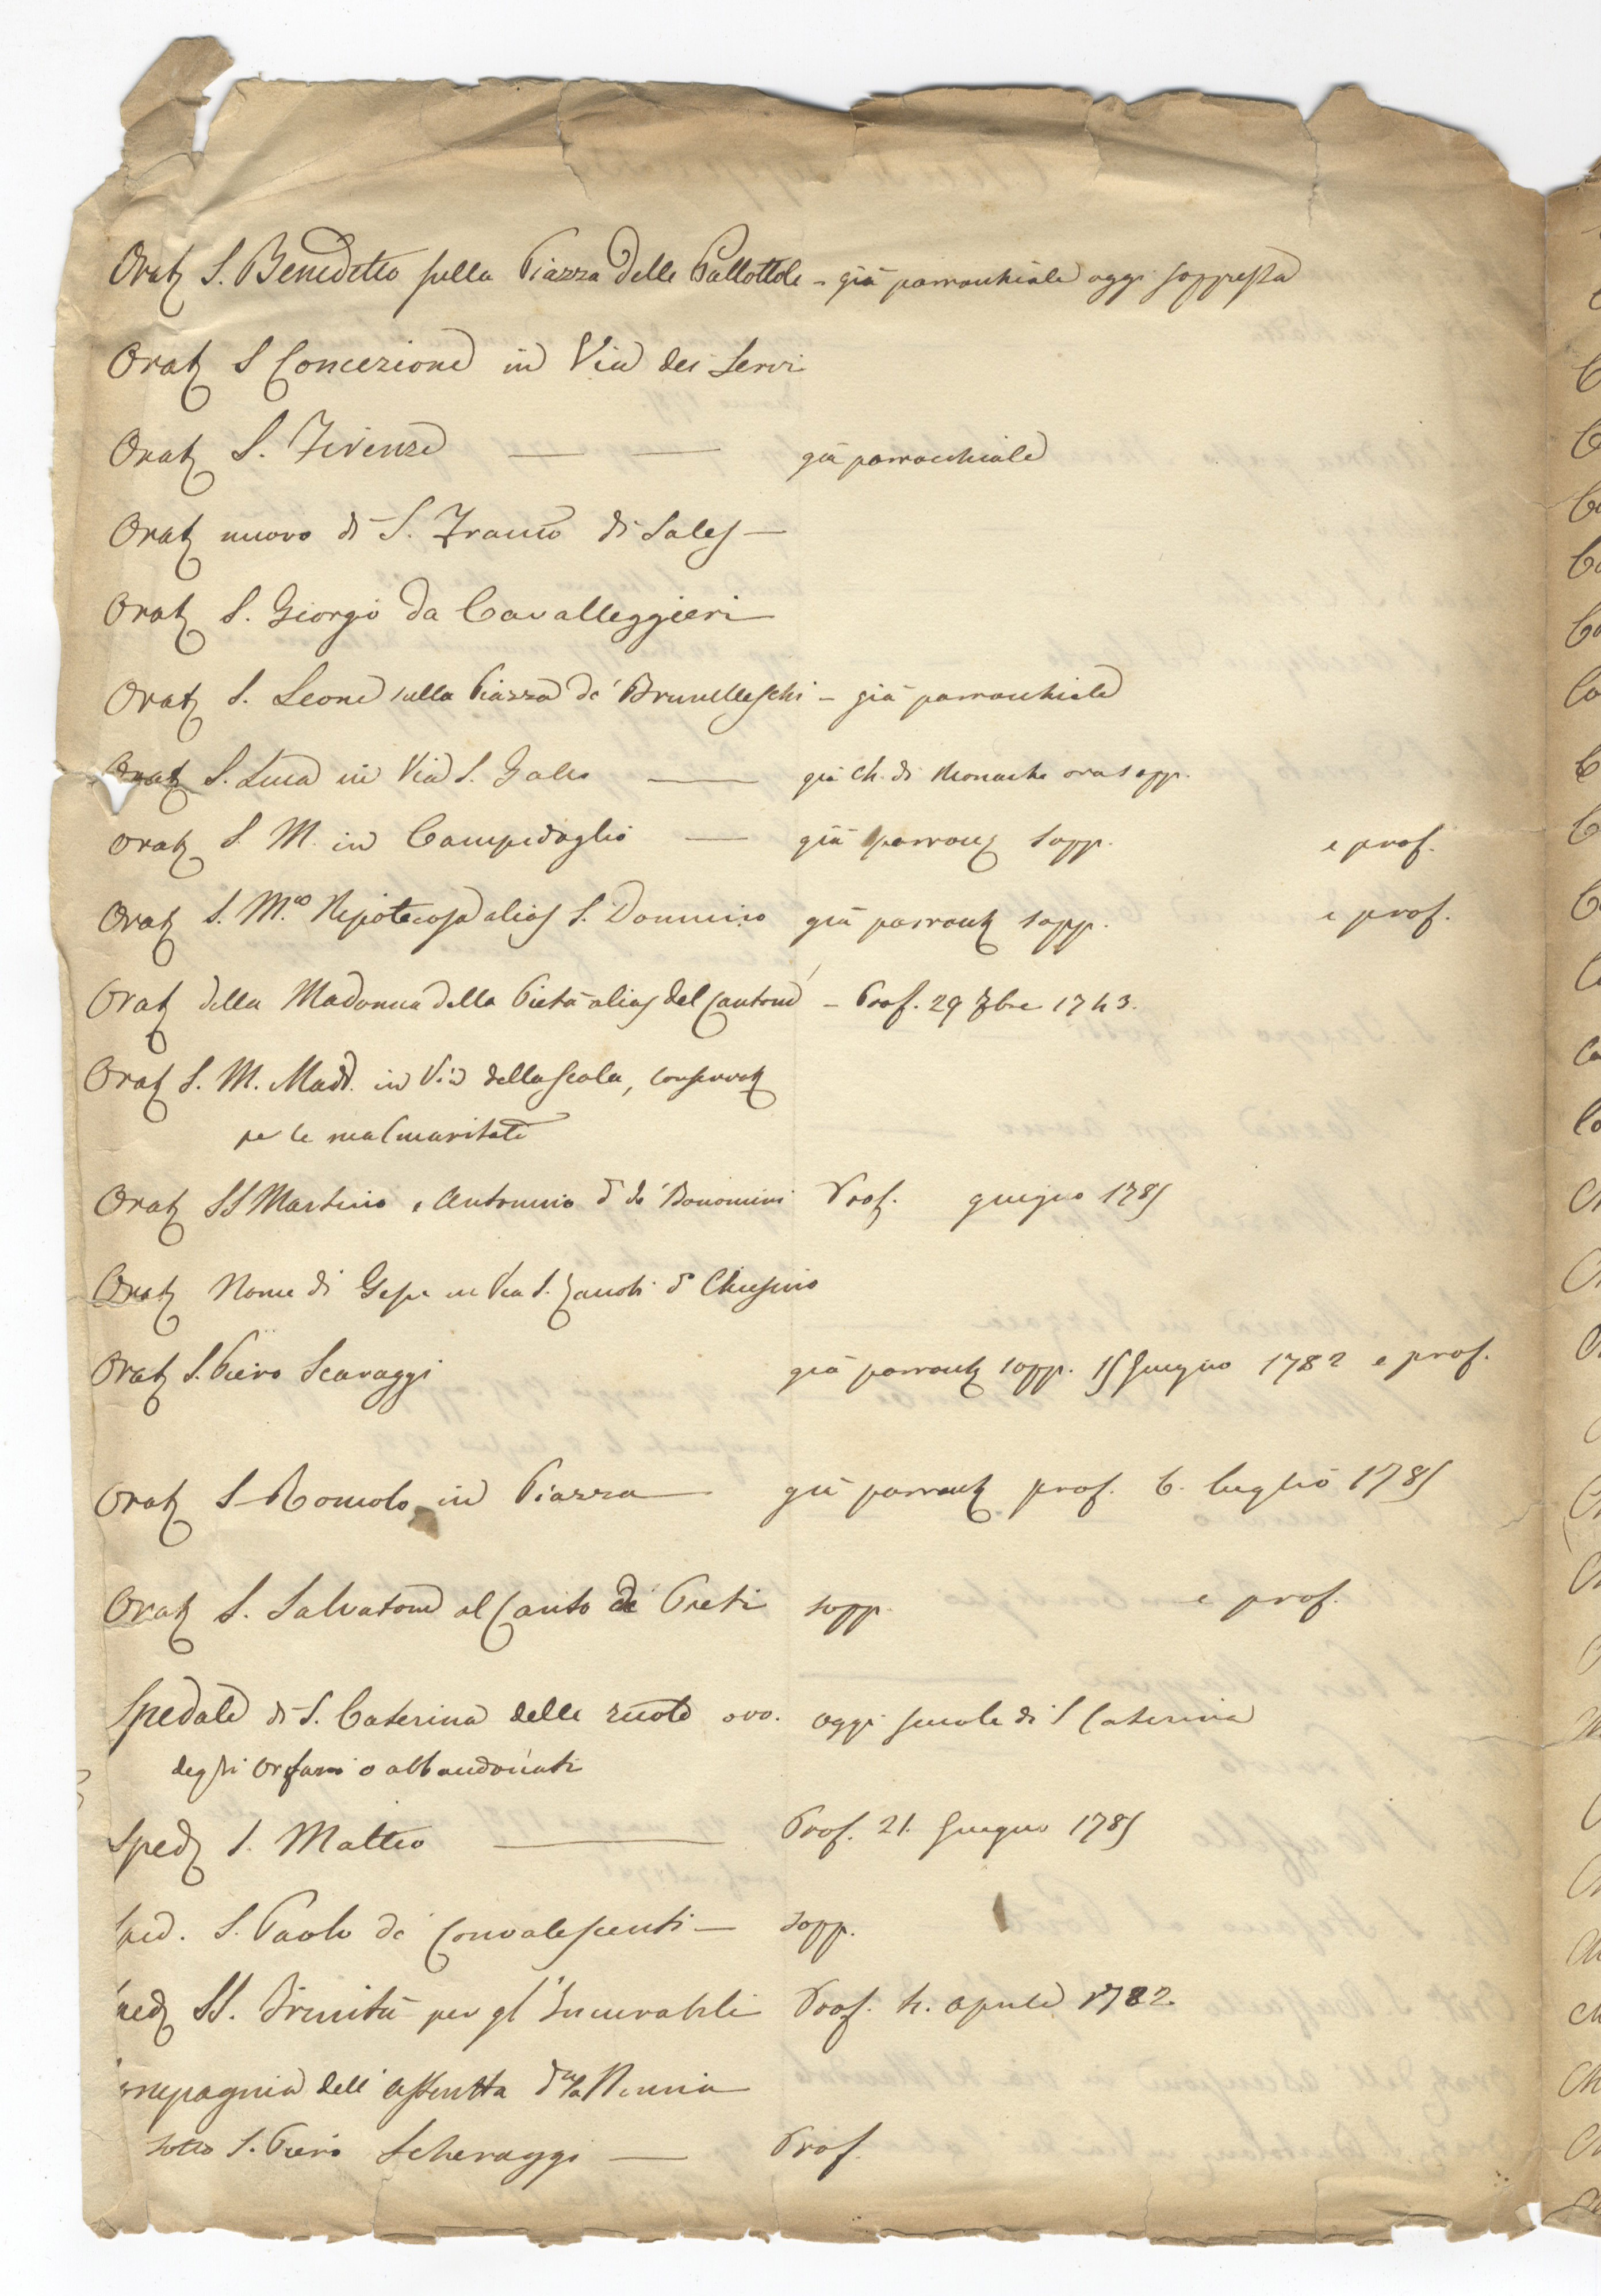 Orat. S. Benedetto sulla Piazza delle Pallottole - già parrochiale oggi soppressa
Orat. S Concezione in Via dei Servi
Orat. S. Firenze — — già parrochiale
Orat. nuovo di S. Franco di Sales —
Orat. S. Giorgio da Cavalleggieri
Orat. S. Leone sulla Piazza de' Brunelleschi - già parrochiale
Orat. S. Luca in Via S. Gallo — già Ch. di Monache ora sopp.
Orat. S. M. in Campidoglio — già parroch. sopp. e prof.
Orat. S. M.a Nipotecosa alias S. Donnino già parroch. sopp. e prof.
Orat. della Madonna della Pietà alias del Cantone - Prof. 29 7bre 1743.
Orat. S. M. Madd. in Via della Scala, conservat.
per le malmaritate
Orat. SS Martino e Antonino d. de' Bonomini Prof. giugno 1785
Orat. Nome di Gesù in Via S. Zanobi d. Chiesino
Orat. S. Piero Scaraggi già parroch. sopp. 15 Giugno 1782 e prof.
Orat. S. Romolo in Piazza — già parroch. prof. 6. luglio 1785
Orat. S. Salvatore al Canto de' Preti sopp. e prof.
Spedale di S. Caterina delle ruote ovo. oggi scuole di S Caterina
degli Orfani o abbandonati
Sped. S. Matteo — Prof. 21. Giugno 1785
Sped. S. Paolo de' Convalescenti — sopp.
ped. SS. Trinità per gl'Incurabili Prof. 4. Aprile 1782.
ompagnia dell'Assunta
sotto S. Piero Scheraggi — Prof.